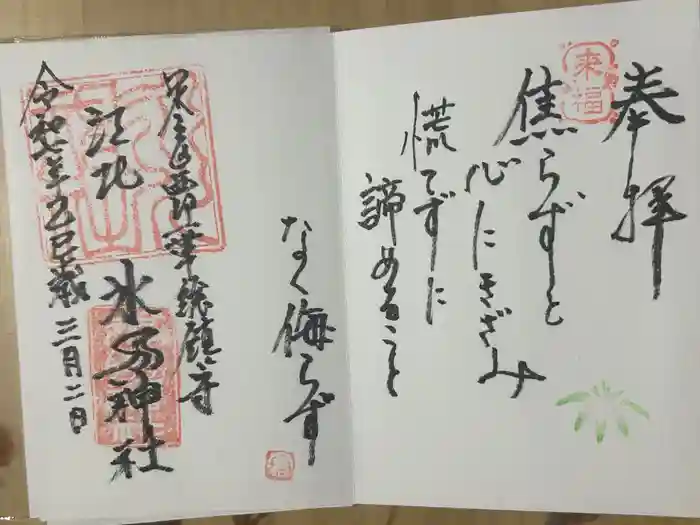 奉拝
来福
焦らずと
心にきざみ
慌てずに
諦めること
なく侮らず
足立西部一帯総鎮守
江北
氷川神社
令和七年乙巳歳三月二日